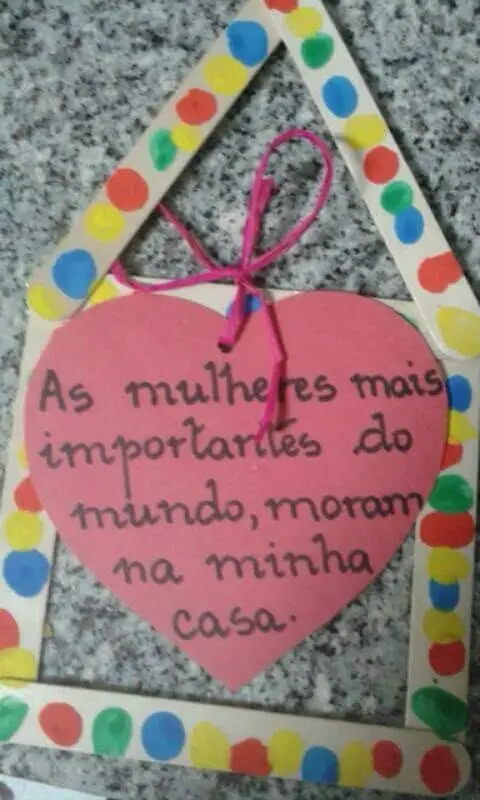 As mulheres mais
importantes do
mundo, moram
na minha
casa.